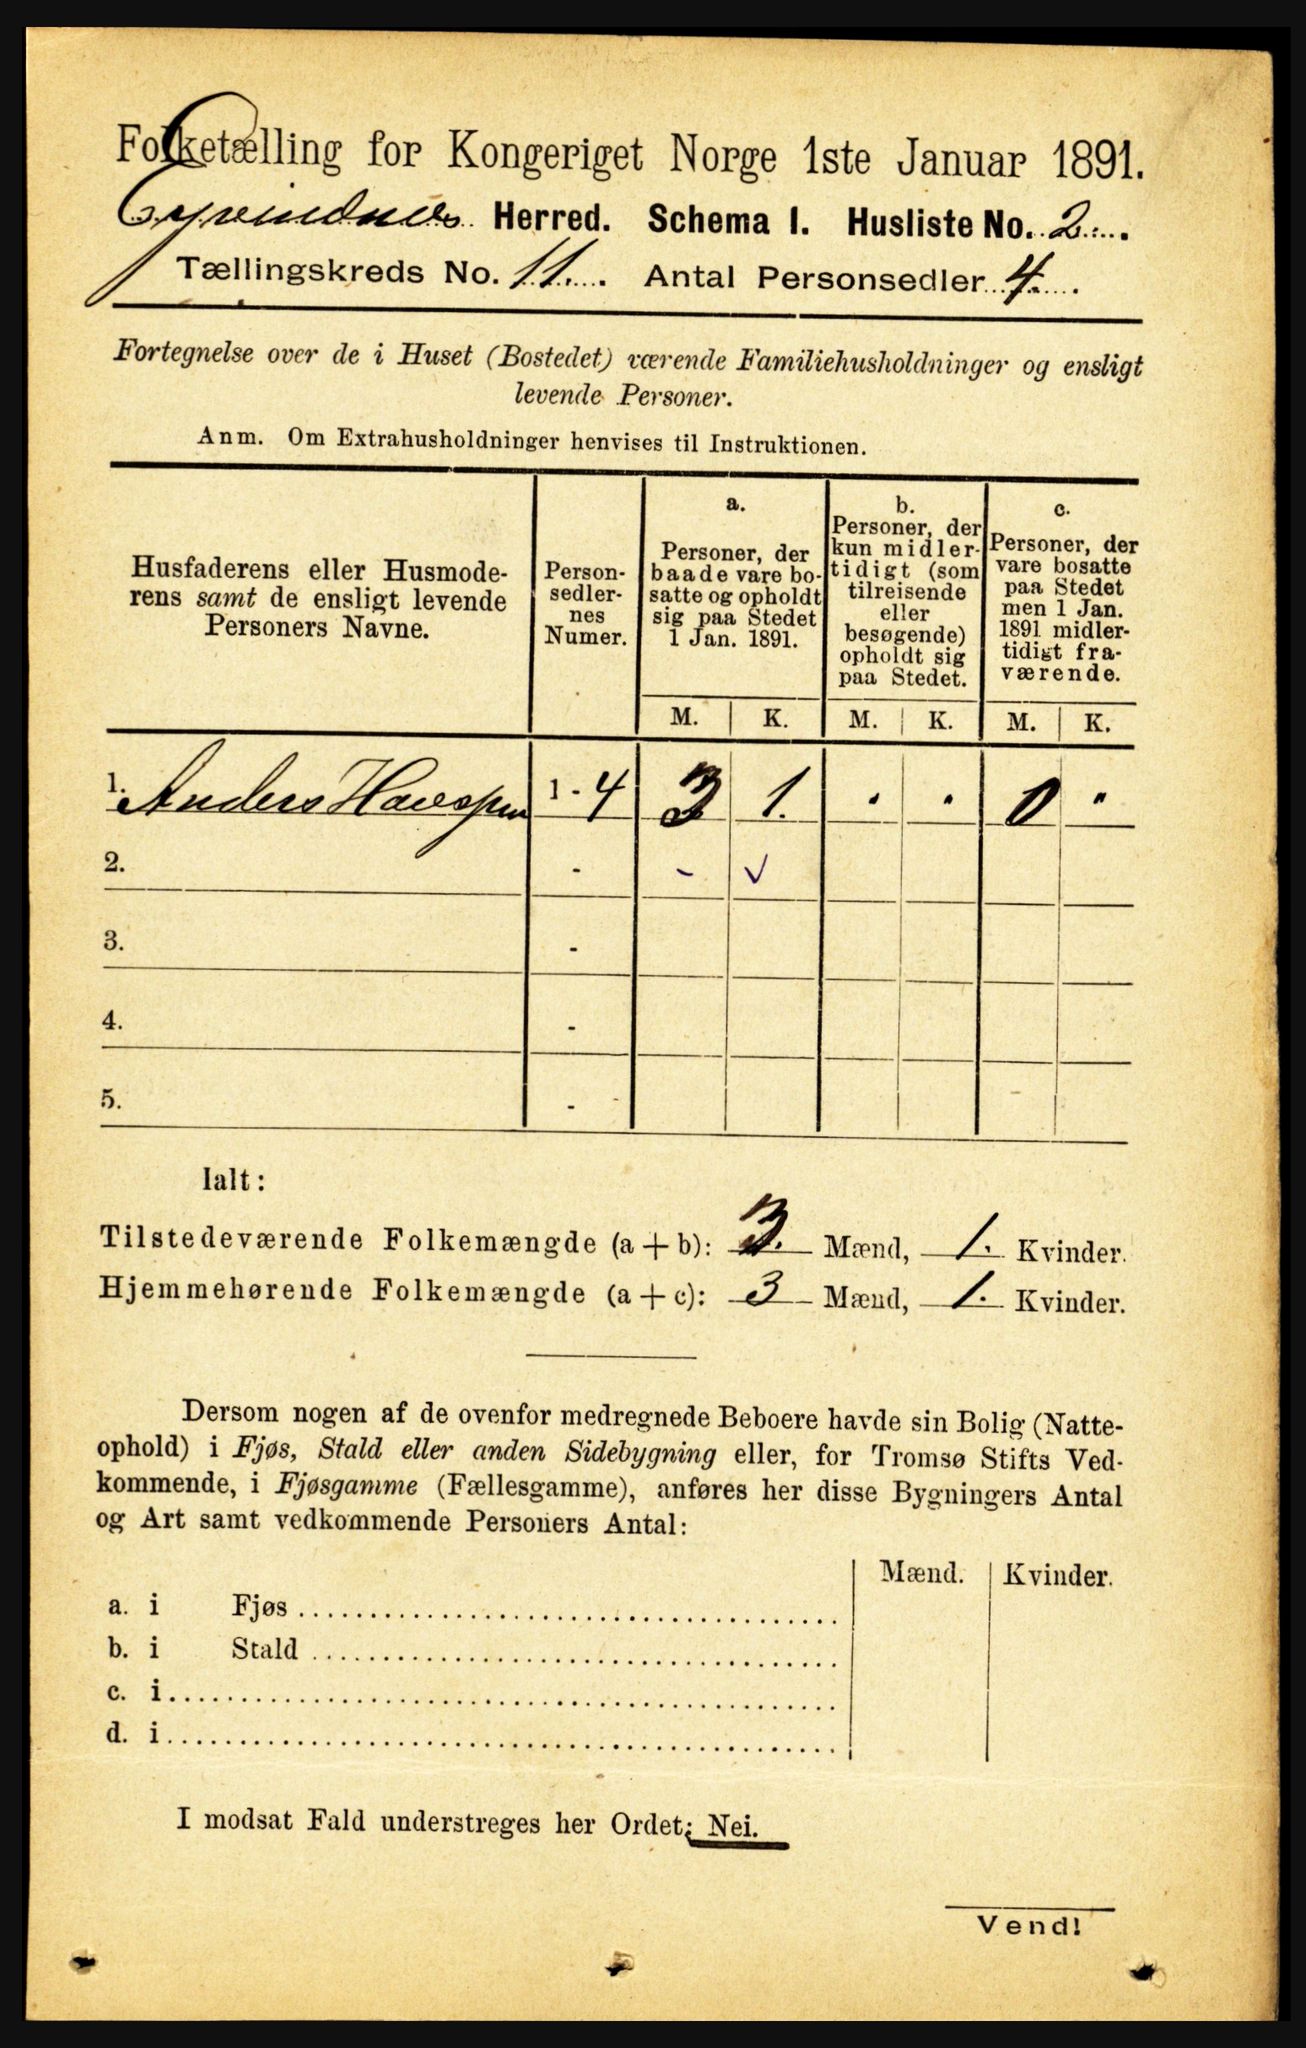 Folketælling for Kongeriget Norge 1ste Januar 1891.
Eyvindvig Herred. Schema I. Husliste No. 2.
Tællingskreds No. 11. Antal Personsedler 4.
Fortegnelse over de i Huset (Bostedet) værende Familiehusholdninger og ensligt
levende Personer.
Anm. Om Extrahusholdninger henvises til Instruktionen.
Husfaderens eller Husmode-
rens samt de ensligt levende
Personers Navne.
Person-
sedler-
nes
Numer.
a.
Personer, der
baade vare bo-
satte og opholdt
sig paa Stedet
1 Jan. 1891.
b.
Personer, der
kun midler-
tidigt (som
tilreisende
eller
besøgende)
opholdt sig
paa Stedet.
c.
Personer, der
vare bosatte
paa Stedet
men 1 Jan.
1891 midler-
tidigt fra-
værende.
M. K. M. K. M. K.
1. Anders 1 - 4 3 1. . . 0 "
2. - - ✓
3. -
4. -
5. -
Ialt:
Tilstedeværende Folkemængde (a + b): 3. Mænd, 1. Kvinder.
Hjemmehørende Folkemængde (a + c): 3 Mænd, 1. Kvinder.
Dersom nogen af de ovenfor medregnede Beboere havde sin Bolig (Natte-
ophold) i Fjøs, Stald eller anden Sidebygning eller, for Tromsø Stifts Ved-
kommende, i Fjøsgamme (Fællesgamme), anføres her disse Bygningers Antal
og Art samt vedkommende Personers Antal:
Mænd. Kvinder.
a. i Fjøs
b. i Stald
c. i
d. i
I modsat Fald understreges her Ordet: Nei.
Vend!